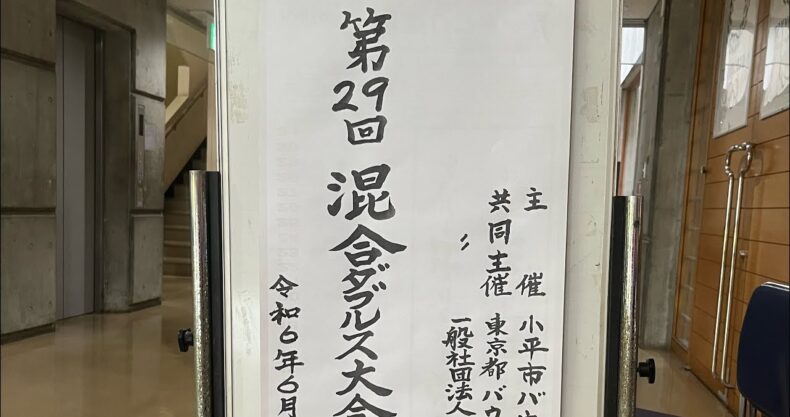 主催 小平市バウ
共同主催 東京都バウ
〃 一般社団法人
第29回 混合ダブルス大会
令和6年6月